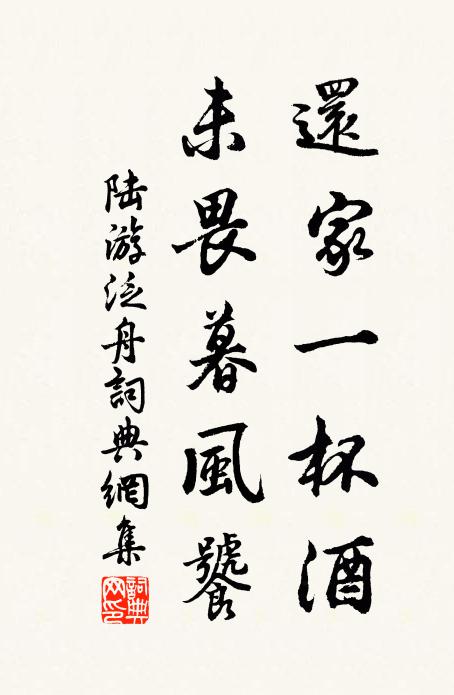 還家一杯酒
未畏暮風饕
陆游泛舟詞典網集
詞典网印